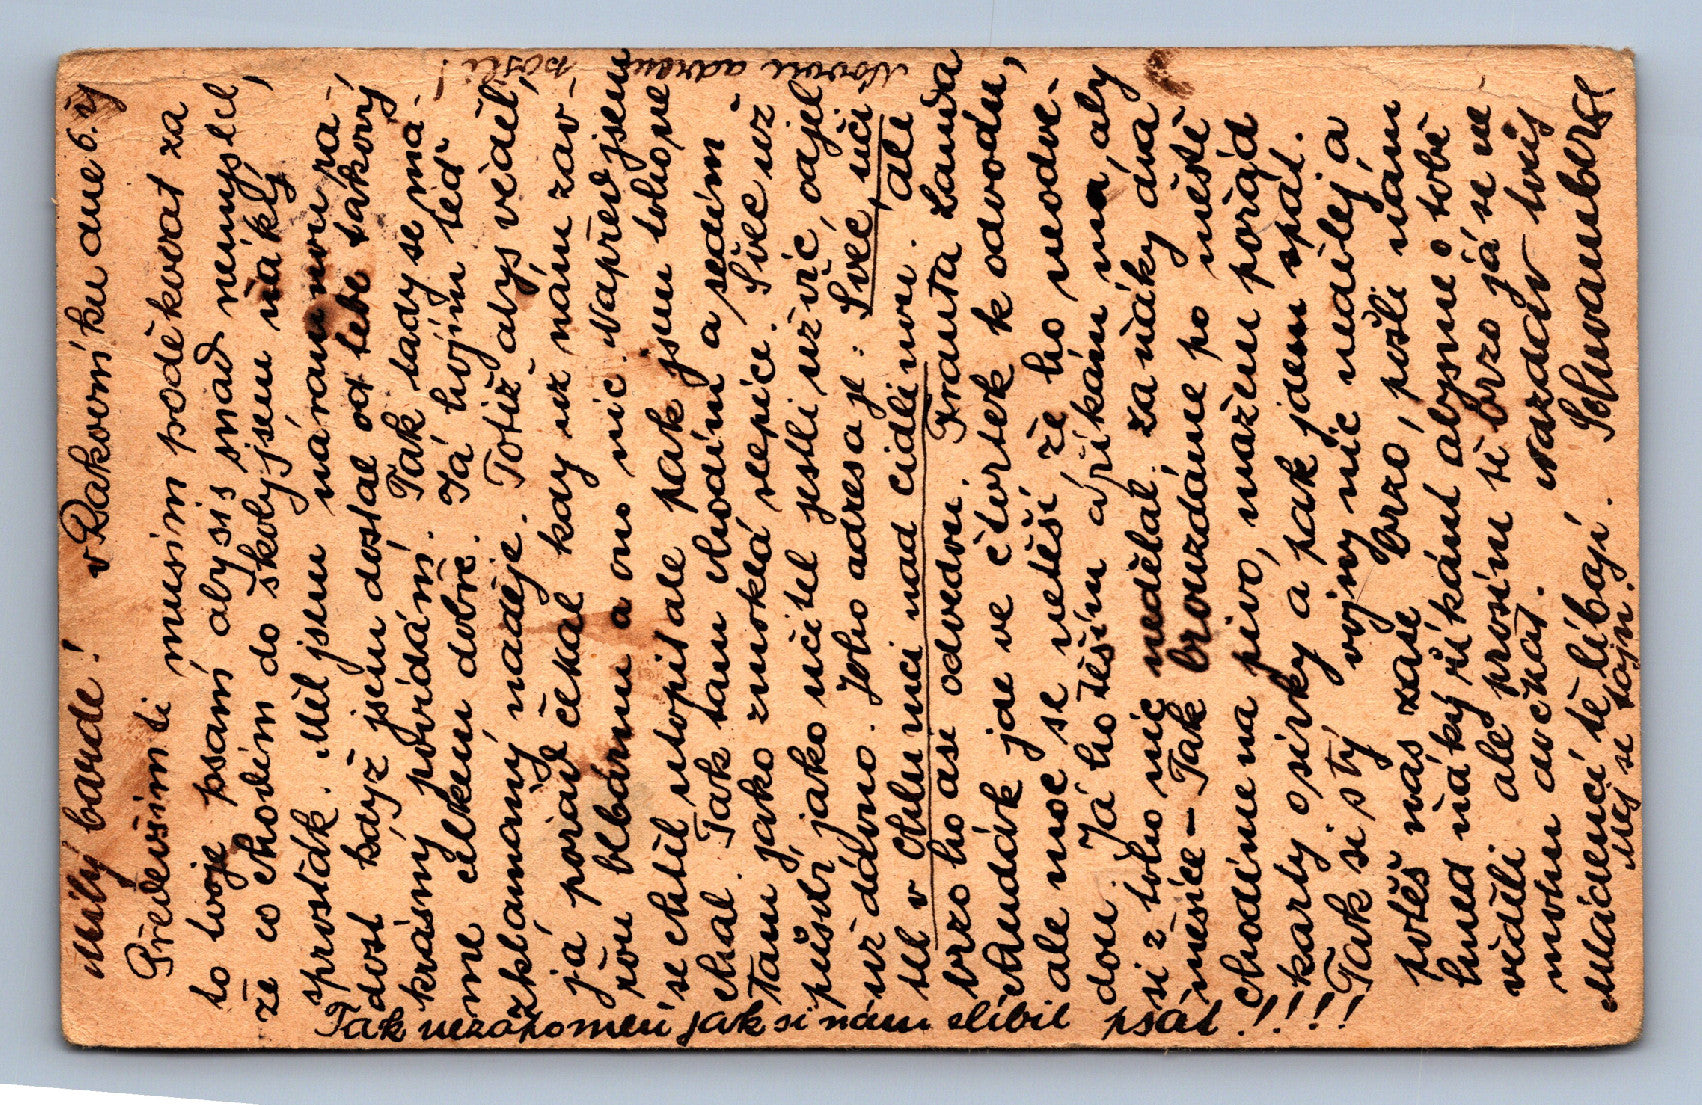 Milý barde! v Rakovníku dne 6. IV
Předevšim ti musim poděkovat za
to tvoje psaní aby si snad nemyslel,
že co chodím do školy jsem ňáký
sprosťák. Měl jsem náramnou ra-
dost když jsem dostal od tebe takový
krásný povídání. Tak tady se má-
me celkem dobře. Já hojím teď
zklamaný naděje. Totiž abys věděl,
já pořád čekal kdy už nám zav-
řou elbárnu a ono nic. Napřed jsem
se chtěl utopit ale pak jsem toho ne
chal. Tak tam chodím a sedím
tam jako zmoklá slepice. Švec už
pustil, jako učitel jestli už víc, odjel
už dávno. Jeho adresa je: Švec, uči
tel v Chlumci nad Cidlinou. ale
brzo ho asi odvedou. Franta Landa
chudák jde ve čtvrtek k odvodu,
ale moc se netěší že ho neodve-
dou. Já ho těším a říkám mu, aby
si z toho nic nedělal. za ňáky dva
měsíce - Tak brouzdáme po městě
chodíme na pivo, mažem pořád
karty o sirky a pak jdem spát.
Tak si s tý vojny nic nedělej a
potěš nás zase brzo, pošli nám
hned ňáký říkání abysme o tobě
věděli ale prosím tě brzo já se ne
mohu dočkat. Nazdar tvůj
Mácenci tě líbají. Schwanberg
Měj se tojn!
Tak nezapomeň jak si nám slíbil psát!!!!
Novou adresu pošli!